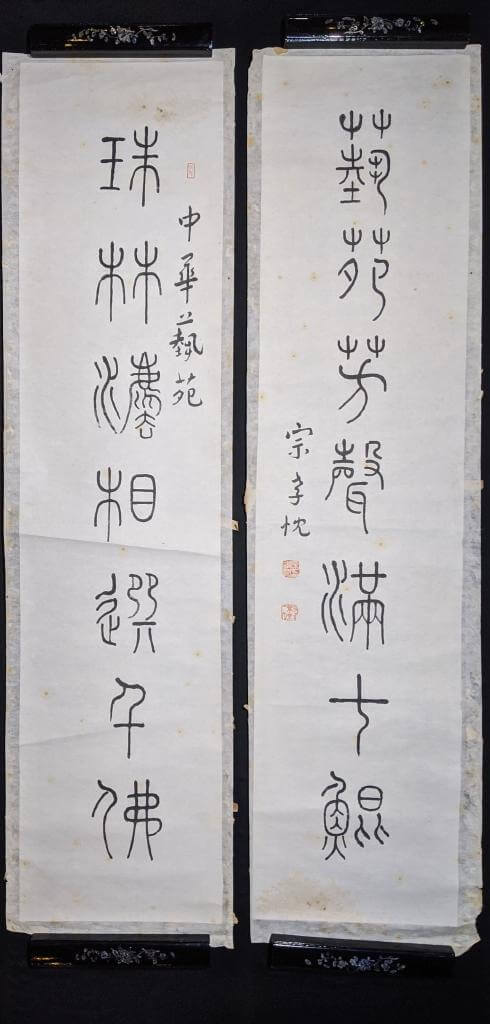 中華藝苑
珠林灋相選千佛
藝苑芳聲滿七鯤
宗孝忱